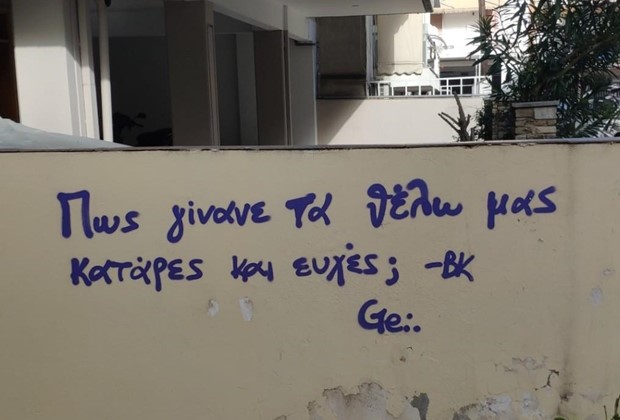 Πως γίνανε τα θέλω μας
κατάρες και ευχές; -BK
Ge:.